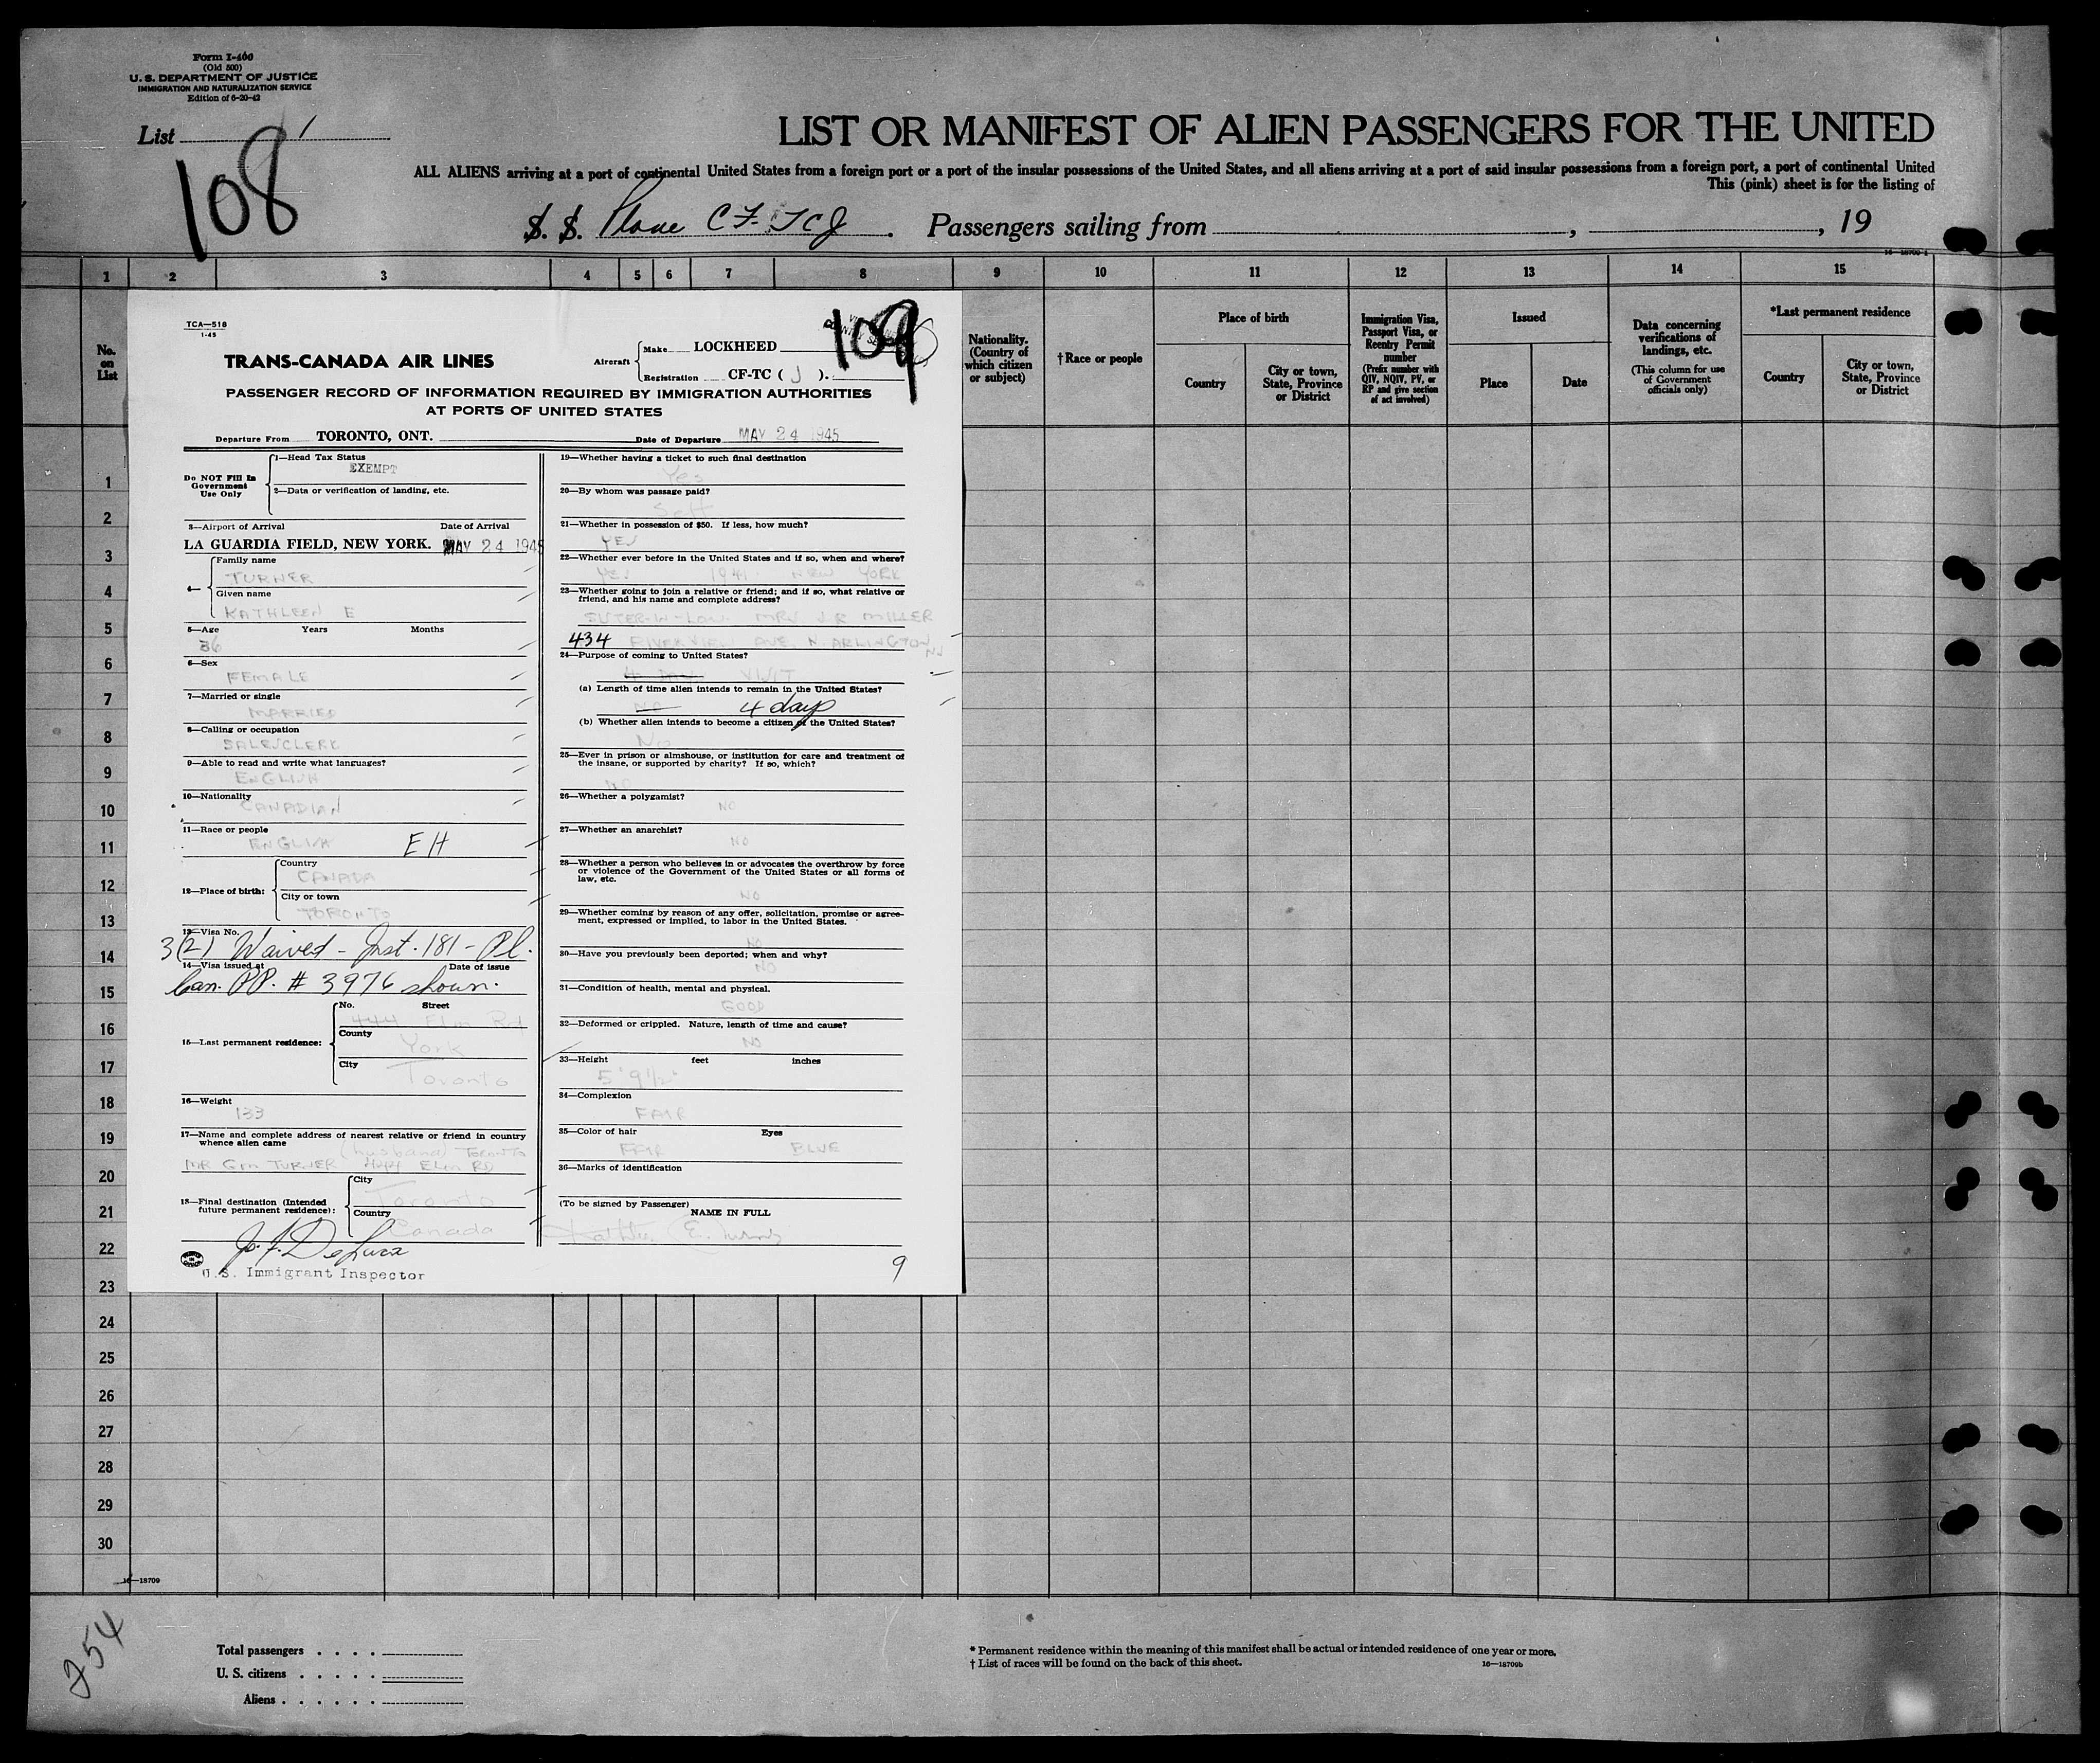 Form I-400
(Old 500)
U. S. DEPARTMENT OF JUSTICE
IMMIGRATION AND NATURALIZATION SERVICE
Edition of 6-20-42
List 1
108
LIST OR MANIFEST OF ALIEN PASSENGERS FOR THE UNITED
ALL ALIENS arriving at a port of continental United States from a foreign port or a port of the insular possessions of the United States, and all aliens arriving at a port of said insular possessions from a foreign port, a port of continental United
This (pink) sheet is for the listing of
S. S. Plane CF-TCJ. Passengers sailing from , , 19
1 2 3 4 5 6 7 8 9 10 11 12 13 14 15
No. on List
Nationality. (Country of which citizen or subject)
† Race or people
Place of birth
Country
City or town, State, Province or District
Immigration Visa, Passport Visa, or Reentry Permit number
(Prefix number with QIV, NQIV, PV, or RP and give section of act involved)
Issued
Place
Date
Data concerning verifications of landings, etc.
(This column for use of Government officials only)
*Last permanent residence
Country
City or town, State, Province or District
TCA—518
1-45
109
TRANS-CANADA AIR LINES
Aircraft
Make LOCKHEED
Registration CF-TC ( J ).
PASSENGER RECORD OF INFORMATION REQUIRED BY IMMIGRATION AUTHORITIES
AT PORTS OF UNITED STATES
Departure From TORONTO, ONT. Date of Departure MAY 24 1945
Do NOT Fill In Government Use Only
1—Head Tax Status
EXEMPT
2—Data or verification of landing, etc.
3—Airport of Arrival Date of Arrival
LA GUARDIA FIELD, NEW YORK. MAY 24 1945
4—
Family name
TURNER
Given name
KATHLEEN E
5—Age Years Months
36
6—Sex
FEMALE
7—Married or single
MARRIED
8—Calling or occupation
SALESCLERK
9—Able to read and write what languages?
ENGLISH
10—Nationality
CANADIAN
11—Race or people
ENGLISH EH
12—Place of birth:
Country
CANADA
City or town
TORONTO
13—Visa No.
3(2) Waived - Inst. 181 - Pl.
14—Visa issued at Date of issue
Can. PP. # 3976 shown.
15—Last permanent residence:
No. Street
444 Elm Rd
County
York
City
Toronto
16—Weight
133
17—Name and complete address of nearest relative or friend in country whence alien came
(husband) TORONTO
MR Gm TURNER 444 ELM RD
18—Final destination (Intended future permanent residence):
City
Toronto
Country
Canada
U.S. Immigrant Inspector
19—Whether having a ticket to such final destination
Yes
20—By whom was passage paid?
Self
21—Whether in possession of $50. If less, how much?
YES
22—Whether ever before in the United States and if so, when and where?
YES 1941 NEW YORK
23—Whether going to join a relative or friend; and if so, what relative or friend, and his name and complete address?
SISTER-IN-LAW MRS J.R MILLER
434 RIVERVIEW AVE N ARLINGTON NJ
24—Purpose of coming to United States?
VISIT
(a) Length of time alien intends to remain in the United States?
NO 4 days
(b) Whether alien intends to become a citizen of the United States?
No
25—Ever in prison or almshouse, or institution for care and treatment of the insane, or supported by charity? If so, which?
NO
26—Whether a polygamist?
NO
27—Whether an anarchist?
NO
28—Whether a person who believes in or advocates the overthrow by force or violence of the Government of the United States or all forms of law, etc.
NO
29—Whether coming by reason of any offer, solicitation, promise or agreement, expressed or implied, to labor in the United States.
NO
30—Have you previously been deported; when and why?
NO
31—Condition of health, mental and physical.
GOOD
32—Deformed or crippled. Nature, length of time and cause?
NO
33—Height feet inches
5' 9 1/2"
34—Complexion
FAIR
35—Color of hair Eyes
FAIR BLUE
36—Marks of identification
(To be signed by Passenger) NAME IN FULL
9
1
2
3
4
5
6
7
8
9
10
11
12
13
14
15
16
17
18
19
20
21
22
23
24
25
26
27
28
29
30
16—18709
254
Total passengers
U. S. citizens
Aliens
* Permanent residence within the meaning of this manifest shall be actual or intended residence of one year or more.
† List of races will be found on the back of this sheet.
16—18709b